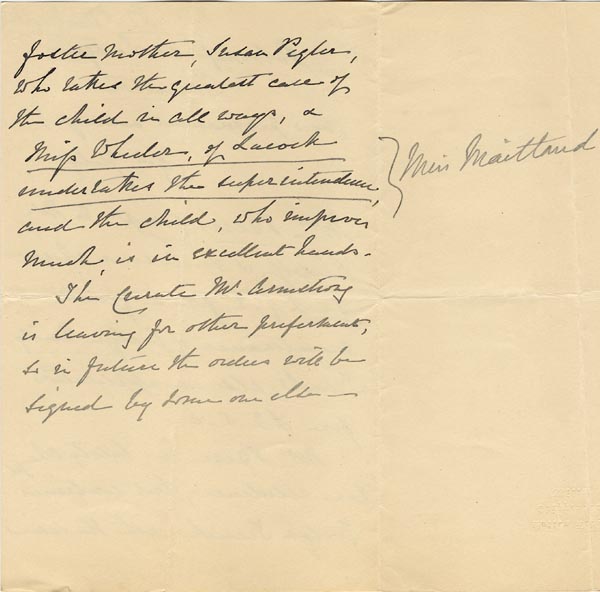 foster mother, Susan Pegler,
who takes the greatest care of
the child in all ways, &
Miss Wheeler, of Lacock
undertakes the superintendence,
and the child, who improves
much, is in excellent hands.
The Curate Mr. Armstrong
is leaving for other preferment,
so in future the orders will be
signed by some one else —
Miss Maitland